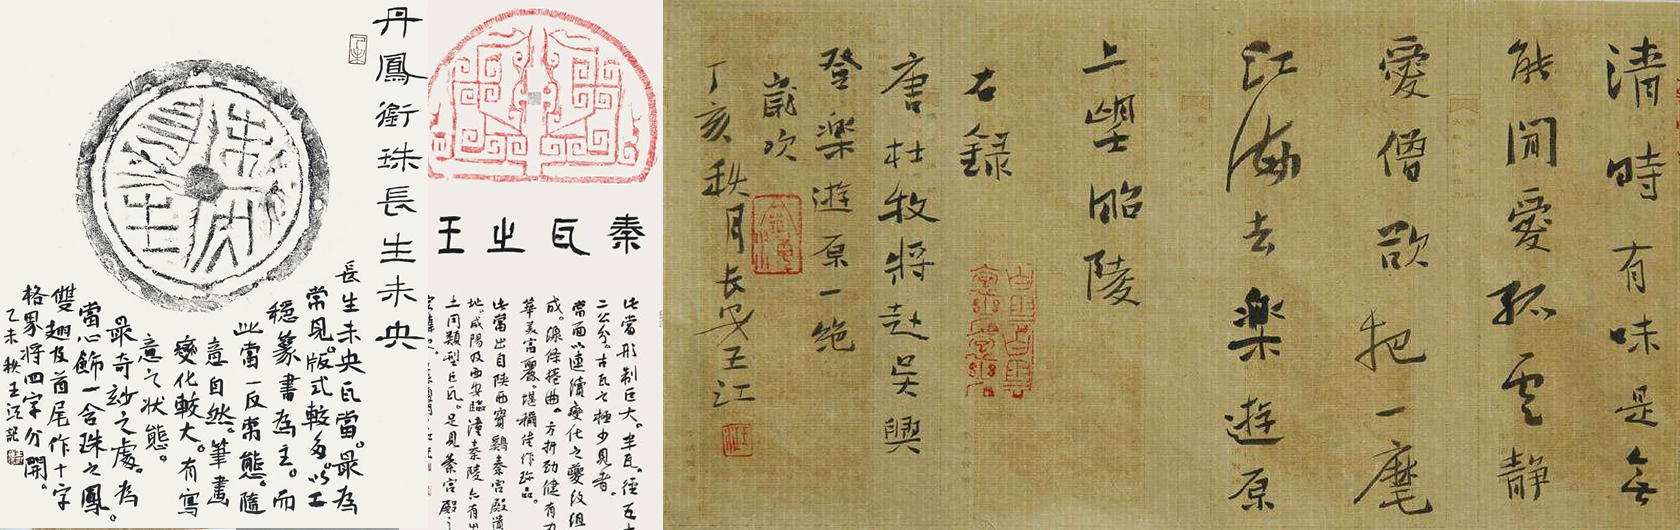 丹鳳銜珠長生未央
長生未央瓦當。最為
常見。版式較多。以工
穩篆書為主。而
此當一反常態。隨
意自然。筆畫
變化較大。有寫
意之狀態。
最奇妙之處。為
當心飾一含珠之鳳。
雙翅及首尾作十字
格界將四字分開。
乙未秋王江記
秦瓦之王
此當形制巨大。半瓦。徑五十
二公分。古瓦之極少見者。
當面以連續變化之夔紋組
成。線條捲曲。方折勁健有力
華美富麗。堪稱佳作珍品。
此當出自陝西寶鷄秦宮殿遺
地。咸陽及西安臨潼秦陵亦有出
土同類型巨瓦。足見秦宮殿之
清時有味是無
能閒愛孤雲靜
愛僧欲把一麾
江海去樂遊原
上望昭陵
右錄
唐杜牧將赴吳興
登樂遊原一絕
歲次
丁亥秋月長安王江